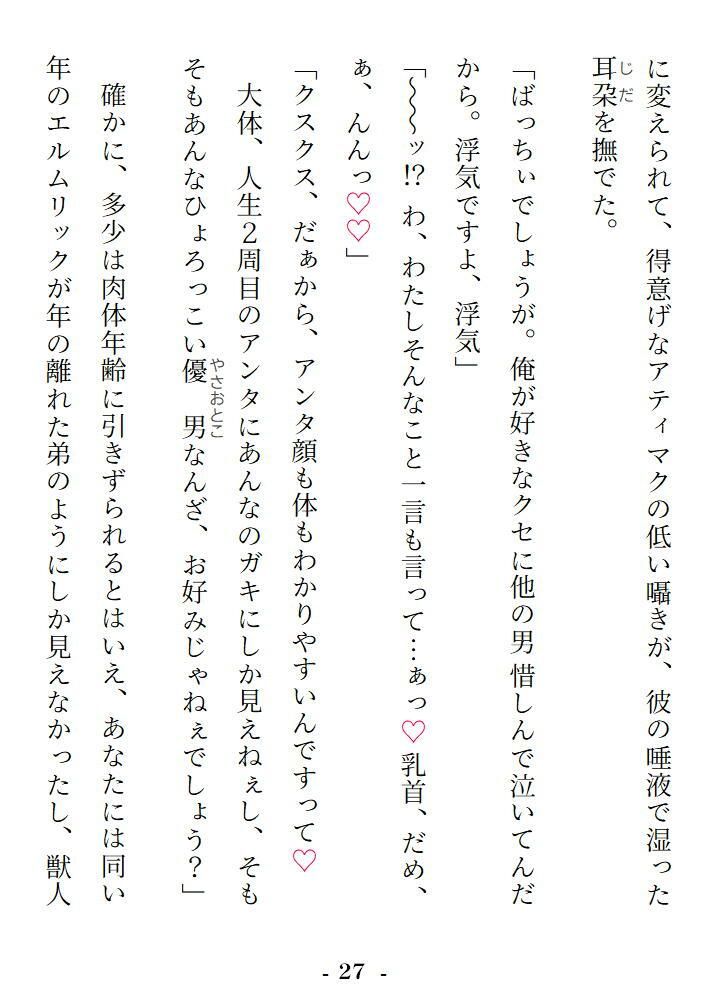 に変えられて、得意げなアティマクの低い囁きが、彼の唾液で湿った
耳朶を撫でた。
じだ
「ばっちぃでしょうが。俺が好きなクセに他の男惜しんで泣いてんだ
から。浮気ですよ、浮気」
「〜〜〜ッ!? わ、わたしそんなこと一言も言って…ぁっ♡乳首、だめ、
ぁ、んんっ♡♡」
「クスクス、だぁから、アンタ顔も体もわかりやすいんですって♡
大体、人生2周目のアンタにあんなのガキにしか見えねぇし、そも
そもあんなひょろっこい優男なんざ、お好みじゃねぇでしょう?」
やさおとこ
確かに、多少は肉体年齢に引きずられるとはいえ、あなたには同い
年のエルムリックが年の離れた弟のようにしか見えなかったし、獣人
- 27 -